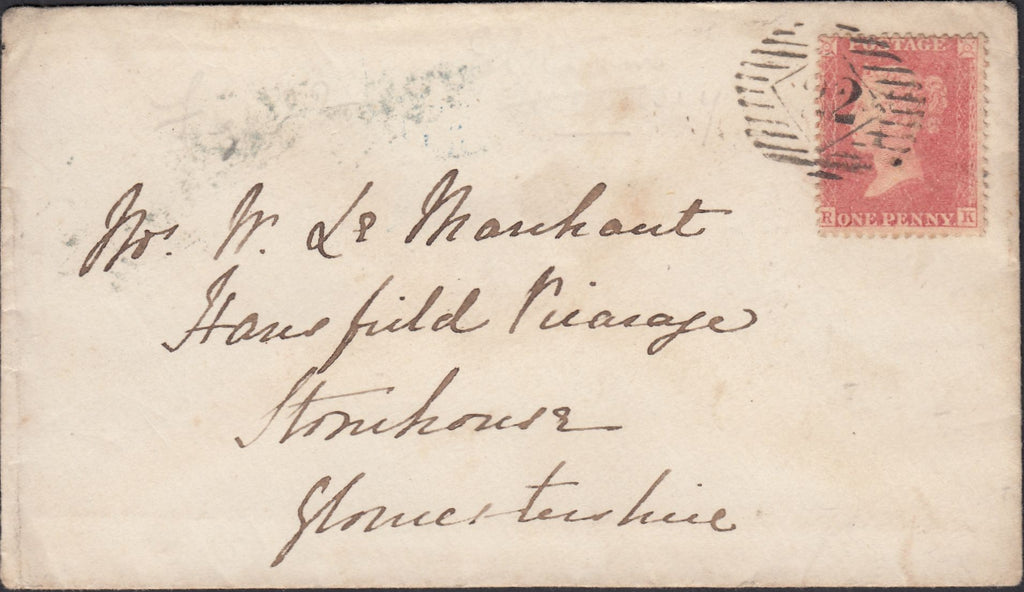 POSTAGE
2
R ONE PENNY K
Mrs. W. Le Marchant
Haresfield Vicarage
Stonehouse
Gloucestershire